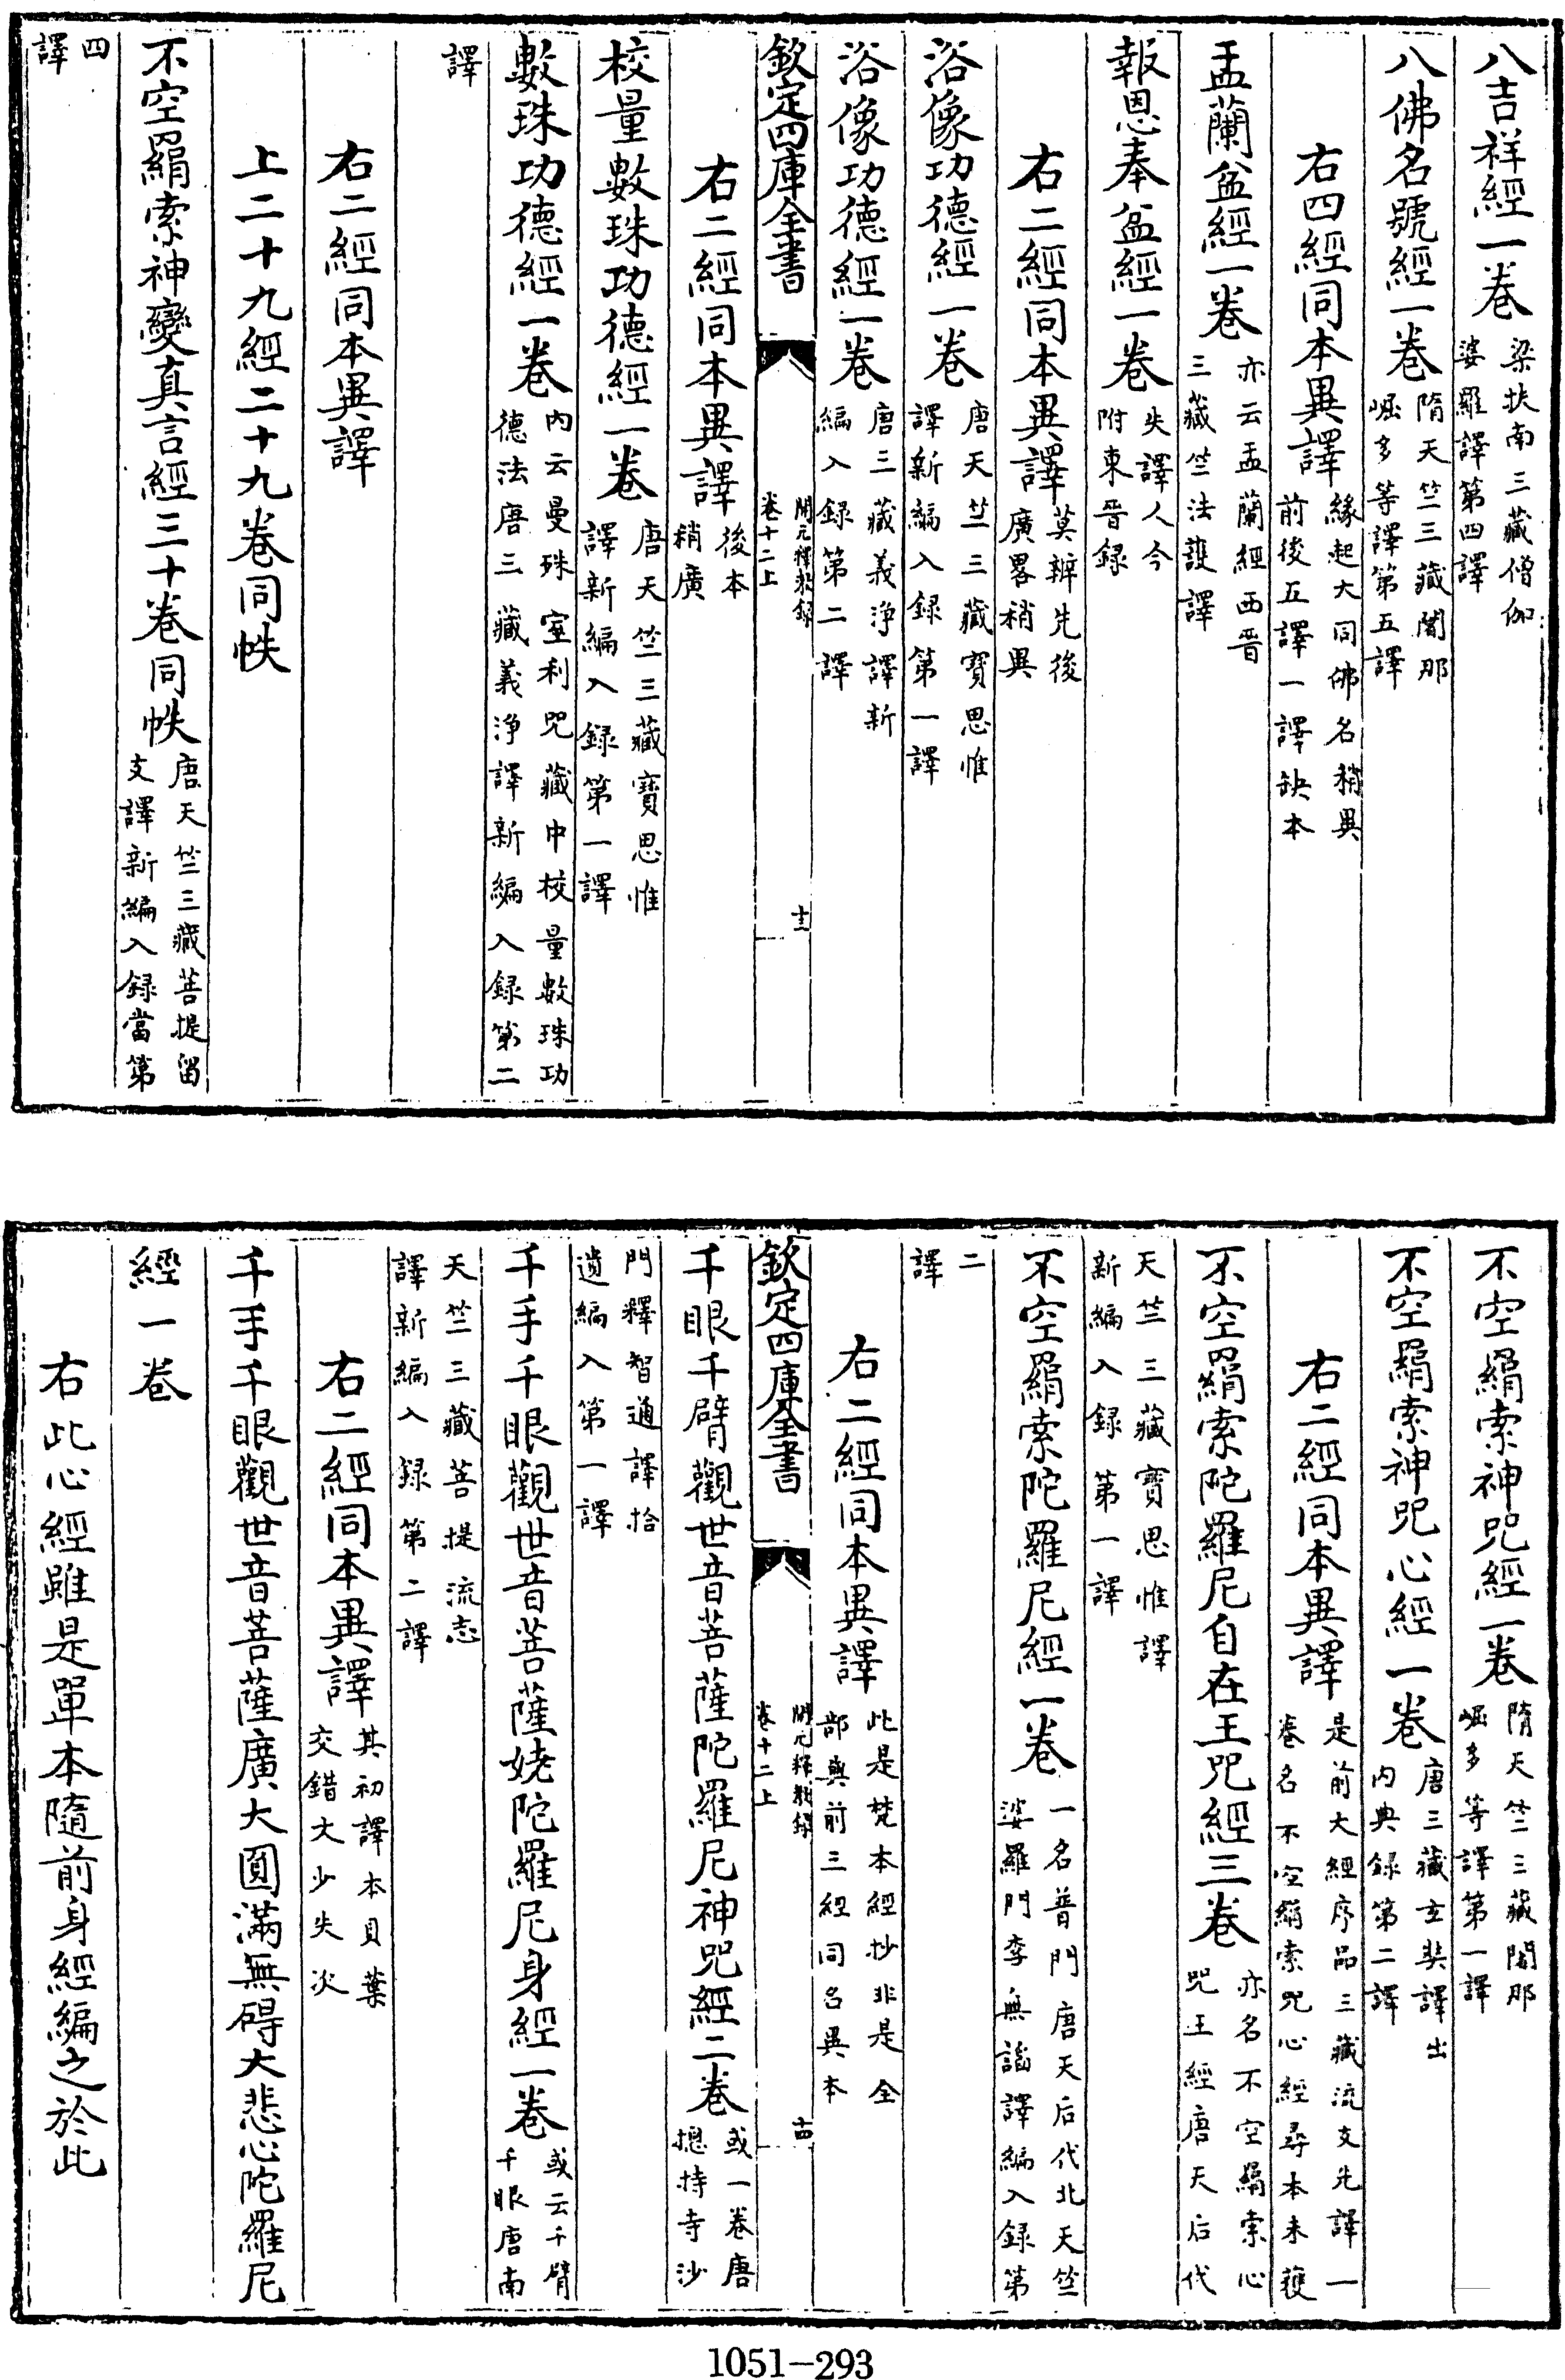 八吉祥經一卷梁扶南三藏僧伽婆羅譯第四譯
八佛名號經一卷隋天竺三藏闍那崛多等譯第五譯
右四經同本異譯緣起大同佛名稍異前後五譯一譯缺本
盂蘭盆經一卷亦云盂蘭經西晉三藏竺法護譯
報恩奉盆經一卷失譯人今附東晉録
右二經同本異譯莫辨先後廣畧稍異
浴像功德經一卷唐天竺三藏寶思惟譯新編入録第一譯
浴像功德經一卷唐三藏義淨譯新編入録第二譯
欽定四庫全書
開元釋教録
卷十二上
十三
右二經同本異譯後本稍廣
校量數珠功德經一卷唐天竺三藏寶思惟譯新編入録第一譯
數珠功德經一卷内云曼殊室利咒藏中校量數珠功德法唐三藏義淨譯新編入録第二
譯
右二經同本異譯
上二十九經二十九卷同帙
不空羂索神變真言經三十卷同帙唐天竺三藏菩提留支譯新編入録當第
四譯
不空羂索神咒經一卷隋天竺三藏闍那崛多等譯第一譯
不空羂索神咒心經一卷唐三藏玄奘譯出内典録第二譯
右二經同本異譯是前大經序品三藏流支先譯一卷名不空羂索咒心經尋本未獲
不空羂索陀羅尼自在王咒經三卷亦名不空羂索心咒王經唐天后代
天竺三藏寶思惟譯新編入録第一譯
不空羂索陀羅尼經一卷一名普門唐天后代北天竺婆羅門李無諂譯編入録第
二譯
右二經同本異譯此是梵本經抄非是全部與前三經同名異本
欽定四庫全書
開元釋教録
卷十二上
十四
千眼千臂觀世音菩薩陀羅尼神咒經二卷或一卷唐摠持寺沙
門釋智通譯拾遺編入第一譯
千手千眼觀世音菩薩姥陀羅尼身經一卷或云千臂千眼唐南
天竺三藏菩提流志譯新編入録第二譯
右二經同本異譯其初譯本貝葉交錯大少失次
千手千眼觀世音菩薩廣大圓滿無碍大悲心陀羅尼
經一卷
右此心經雖是單本隨前身經編之於此
1051-293